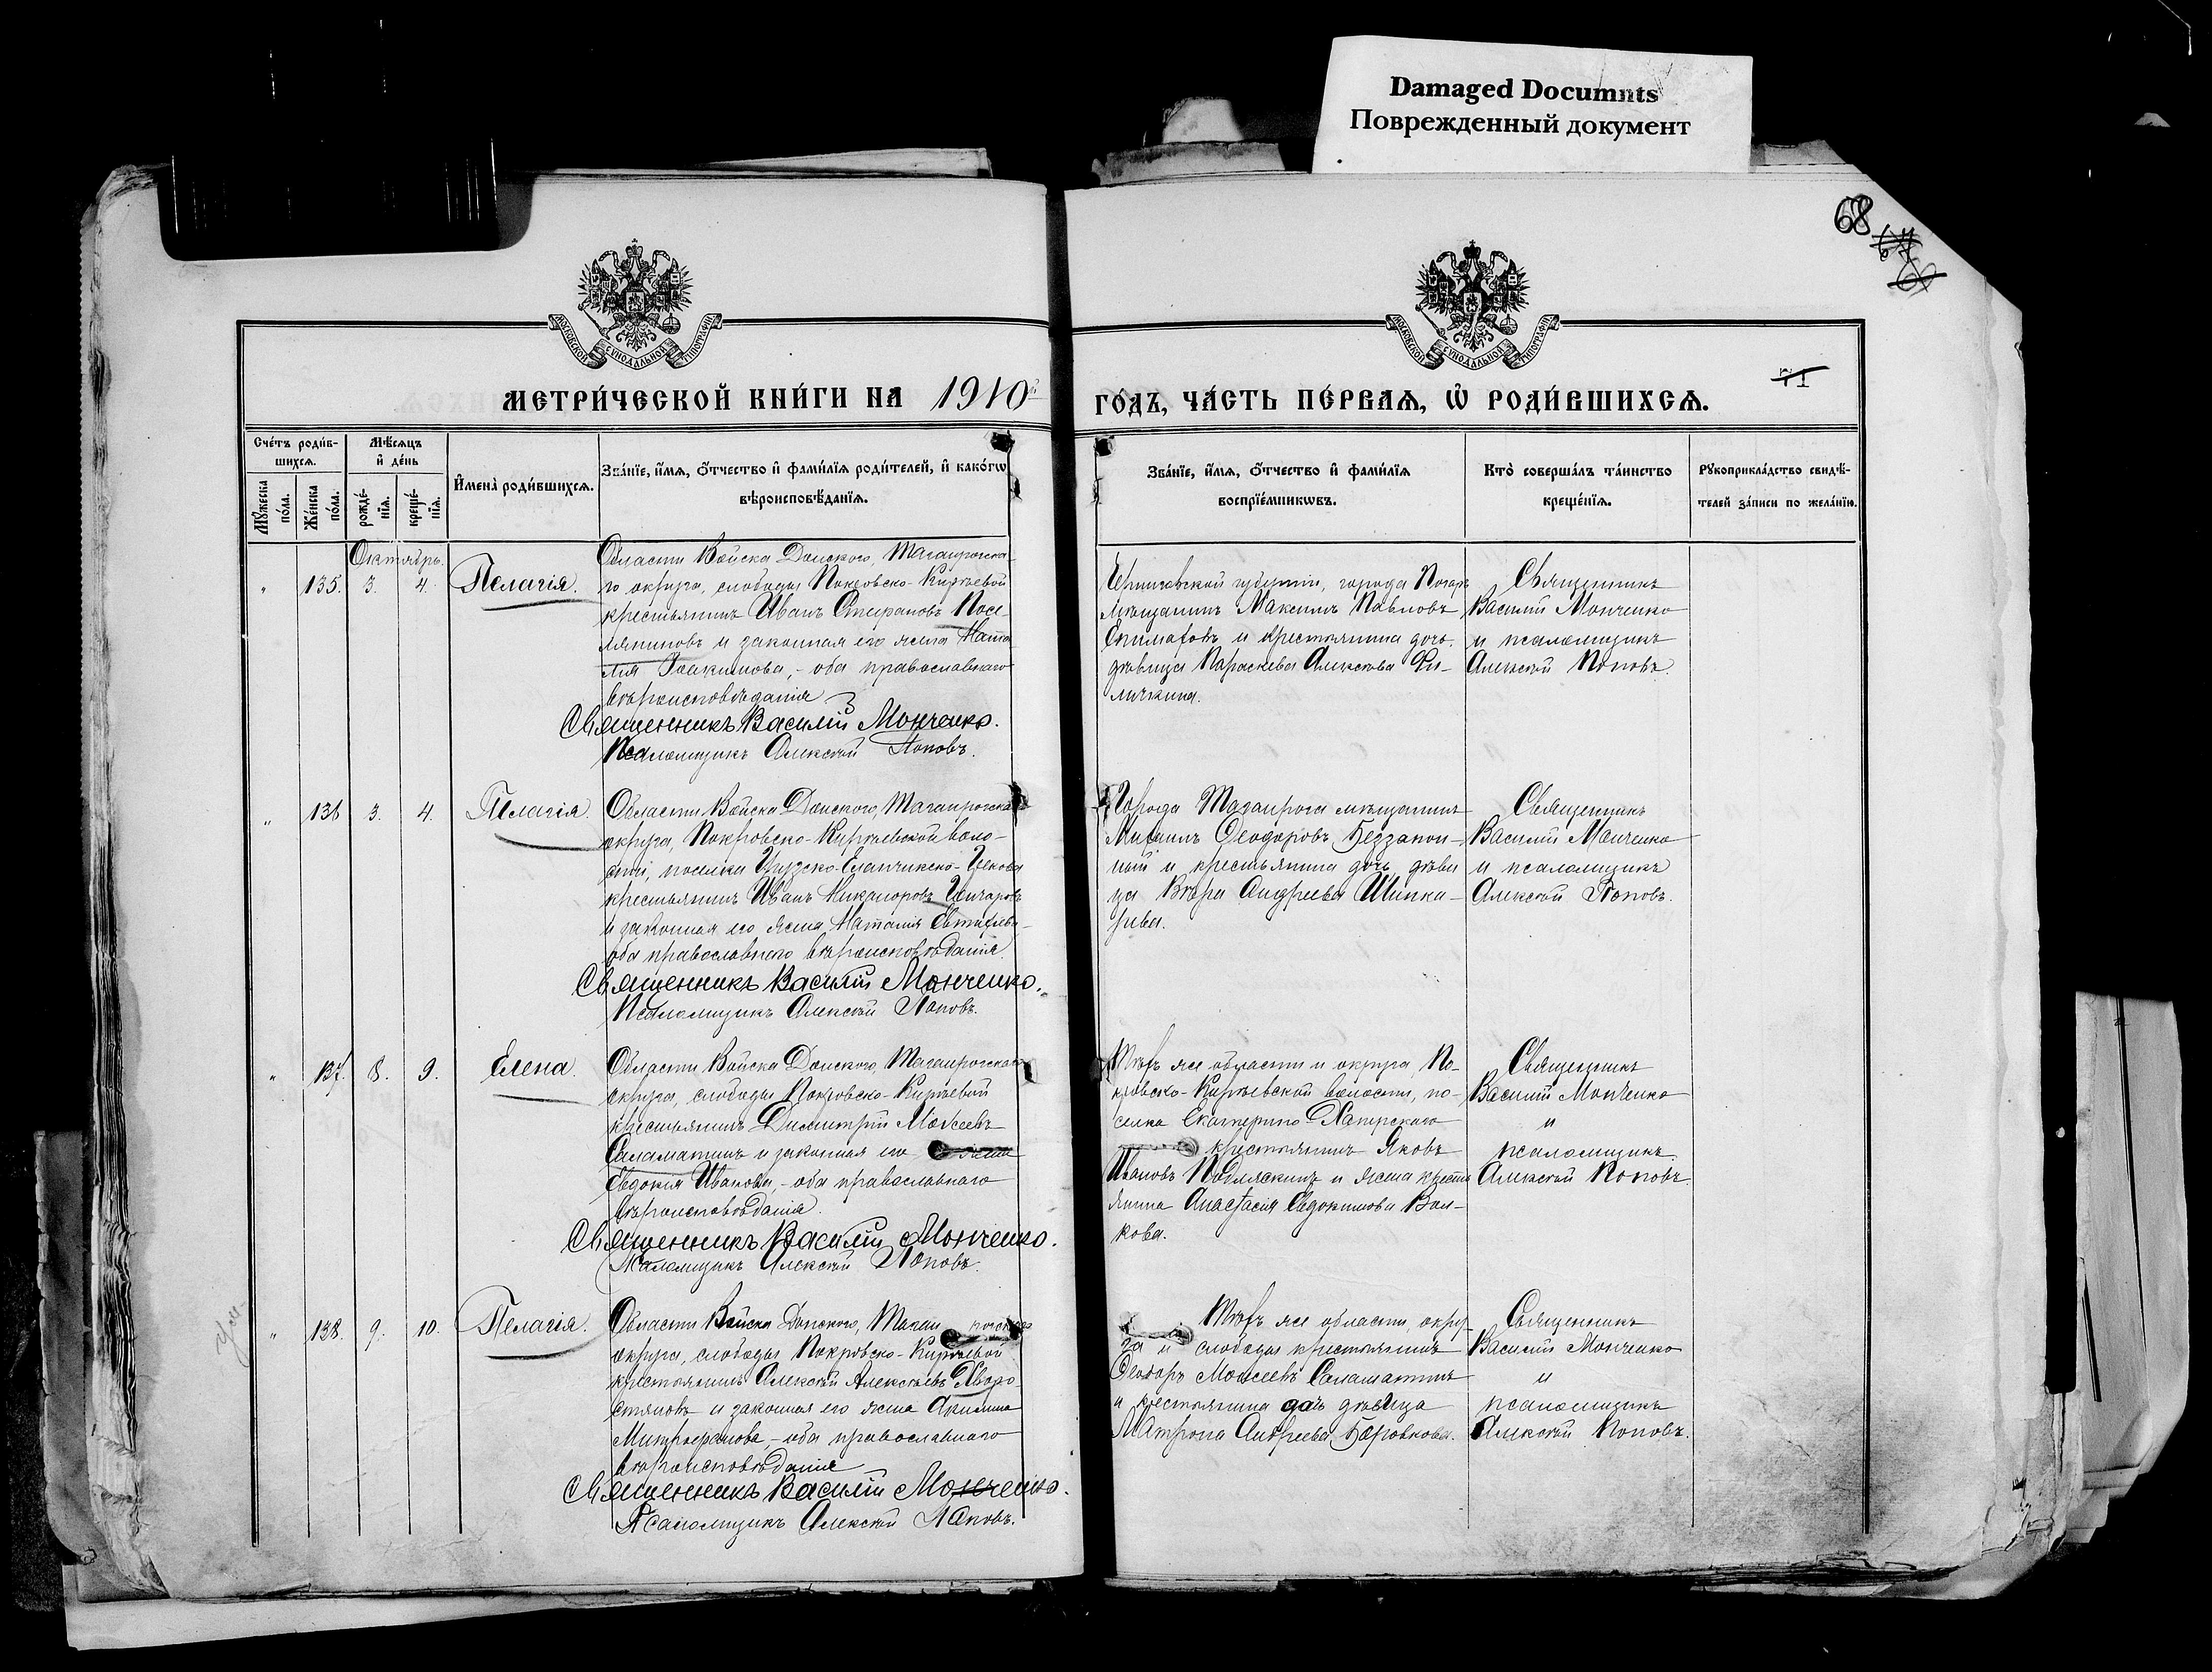 Damaged Documnts
Поврежденный документ
68
МОСКОВСКОЙ СѴНОДАЛЬНОЙ ТИПОГРАФІИ
МОСКОВСКОЙ СѴНОДАЛЬНОЙ ТИПОГРАФІИ
71
МЕТРИ́ЧЕСКОЙ КНИ́ГИ НА 1910
ГО́ДЪ, ЧА́СТЬ ПЕ́РВАЯ, Ѡ РОДИ́ВШИХСЯ.
Сче́тъ роди́в-
шихся.
Мужеска по́ла.
Же́нска по́ла.
Мѣ́сяцъ
и де́нь
рожде́-
нїя.
креще́-
нїя.
Имена̀ роди́вшихся.
Зва́нїе, и́мя, о́тчество и фами́лїя роди́телей, и како́гѡ
вѣроисповѣ́данїя.
Зва́нїе, и́мя, о́тчество и фами́лїя
воспрїе́мникѡвъ.
Кто̀ соверша́лъ та́инство
креще́нїя.
Рукоприкла́дство свидѣ́-
телей за́писи по жела́нїю.
Октябрь.
" 135. 3. 4. Пелагія.
Области Войска Донского, Таганрогска-
го округа, слободы Покровско-Киреевой
крестьянинъ Иванъ Стефановъ Посе-
ляниновъ и законная его жена Ната
лія Іоакимова, - оба православнаго
вѣроисповѣданія
Священникъ Василій Монченко.
Псаломщикъ Алексѣй Поповъ.
Черниговской губерніи, города Погаръ
мѣщанинъ Максимъ Павловъ
и крестьянина дочь
дѣвица Параскева Алексѣева Фи-
личкина.
Священникъ
Василій Монченко
и псаломщикъ
Алексѣй Поповъ.
" 136 3. 4. Пелагія.
Области Войска Донского, Таганрогскаго
округа, Покровско-Киреевской воло-
сти, поселка
крестьянинъ Иванъ Никаноровъ
и законная его жена Наталія
оба православнаго вѣроисповѣданія.
Священникъ Василій Монченко.
Псаломщикъ Алексѣй Поповъ.
Города Таганрога мѣщанинъ
Михаилъ Ѳеодоровъ Беззакон-
ный и крестьянина дочь дѣви
ца Вѣра Андреева Шинка-
рева.
Священникъ
Василій Монченко
и псаломщикъ
Алексѣй Поповъ.
" 137. 8. 9. Елена.
Области Войска Донского, Таганрогскаго
округа, слободы Покровско-Киреевой
крестьянинъ Димитрій Моисеевъ
Саламатинъ и законная его жена
Евдокія Иванова, - оба православнаго
вѣроисповѣданія.
Священникъ Василій Монченко.
Псаломщикъ Алексѣй Поповъ.
Тѣхъ же области и округа, По-
кровско-Киреевской волости, по-
селка Екатерино-Хаперскаго
крестьянинъ Яковъ
Ивановъ и жена крестья
янина Анастасія Евдокимова Вол-
кова.
Священникъ
Василій Монченко
и
псаломщикъ
Алексѣй Поповъ.
" 138. 9. 10. Пелагія.
Области Войска Донского, Таган рогскаго
округа, слободы Покровско-Киреевой
крестьянинъ Алексѣй Алексѣевъ Хворо-
стяновъ и законная его жена Акилина
Митрофанова, - оба православнаго
вѣроисповѣданія
Священникъ Василій Мончено.
Псаломщикъ Алексѣй Поповъ.
Тѣхъ же области, окру-
га и слободы крестьянинъ
Ѳеодоръ Моисеевъ Саламатинъ
и крестьянина дочь дѣвица
Матрона Андреева Боровкова.
Священникъ
Василій Мончено
и
псаломщикъ
Алексѣй Поповъ.